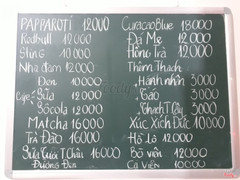 PAPPAROTI 12000
Redbull 12000
Sting 10000
Nha đam 12000
Đen 10000
Cafe Sữa 12000
Sôcôla 12000
Matcha 16000
Trà Đào 16000
Sữa Tươi T.Châu 16000
Đường Đen
Curacao Blue 18000
Đá Me 12000
Hồng Trà 12000
Thêm Thạch
Hạnh nhân 3000
Táo 3000
Thạch T.Cây 3000
Xúc Xích Đức 10000
Hồ lô 12000
Bò viên 12000
Cá Viên 10000